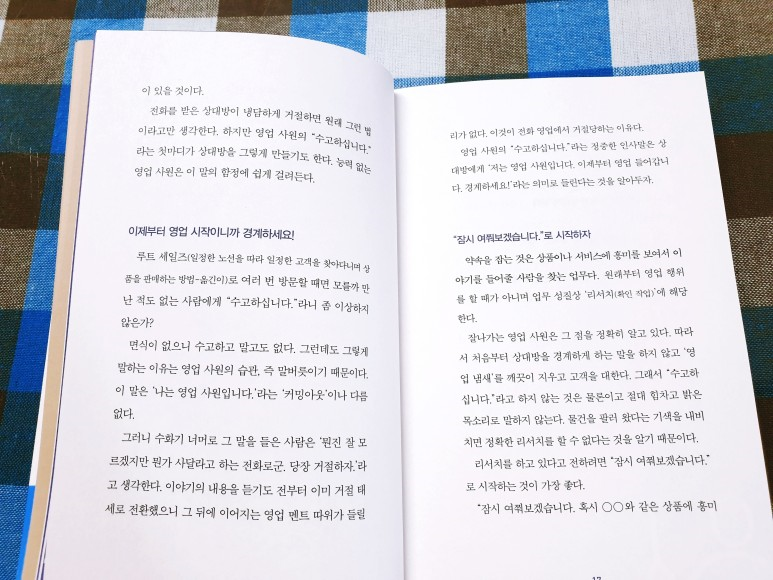 이 있을 것이다.
전화를 받은 상대방이 냉담하게 거절하면 원래 그런 법
이라고만 생각한다. 하지만 영업 사원의 “수고하십니다.”
라는 첫마디가 상대방을 그렇게 만들기도 한다. 능력 없는
영업 사원은 이 말의 함정에 쉽게 걸려든다.
이제부터 영업 시작이니까 경계하세요!
루트 세일즈(일정한 노선을 따라 일정한 고객을 찾아다니며 상
품을 판매하는 방법-옮긴이)로 여러 번 방문할 때면 모를까 만
난 적도 없는 사람에게 “수고하십니다.”라니 좀 이상하지
않은가?
면식이 없으니 수고하고 말고도 없다. 그런데도 그렇게
말하는 이유는 영업 사원의 습관, 즉 말버릇이기 때문이다.
이 말은 ‘나는 영업 사원입니다.’라는 ‘커밍아웃’이나 다름
없다.
그러니 수화기 너머로 그 말을 들은 사람은 ‘뭔진 잘 모
르겠지만 뭔가 사달라고 하는 전화로군. 당장 거절하자.’라
고 생각한다. 이야기의 내용을 듣기도 전부터 이미 거절 태
세로 전환했으니 그 뒤에 이어지는 영업 멘트 따위가 들릴
리가 없다. 이것이 전화 영업에서 거절당하는 이유다.
영업 사원의 “수고하십니다.”라는 정중한 인사말은 상
대방에게 ‘저는 영업 사원입니다. 이제부터 영업 들어갑니
다. 경계하세요!’라는 의미로 들린다는 것을 알아두자.
“잠시 여쭤보겠습니다.”로 시작하자
약속을 잡는 것은 상품이나 서비스에 흥미를 보여서 이
야기를 들어줄 사람을 찾는 업무다. 원래부터 영업 행위
를 할 때가 아니며 업무 성질상 ‘리서치(확인 작업)’에 해당
한다.
잘나가는 영업 사원은 그 점을 정확히 알고 있다. 따라
서 처음부터 상대방을 경계하게 하는 말을 하지 않고 ‘영
업 냄새’를 깨끗이 지우고 고객을 대한다. 그래서 “수고하
십니다.”라고 하지 않는 것은 물론이고 절대 힘차고 밝은
목소리로 말하지 않는다. 물건을 팔러 왔다는 기색을 내비
치면 정확한 리서치를 할 수 없다는 것을 알기 때문이다.
리서치를 하고 있다고 전하려면 “잠시 여쭤보겠습니다.”
로 시작하는 것이 가장 좋다.
“잠시 여쭤보겠습니다. 혹시 ○○와 같은 상품에 흥미